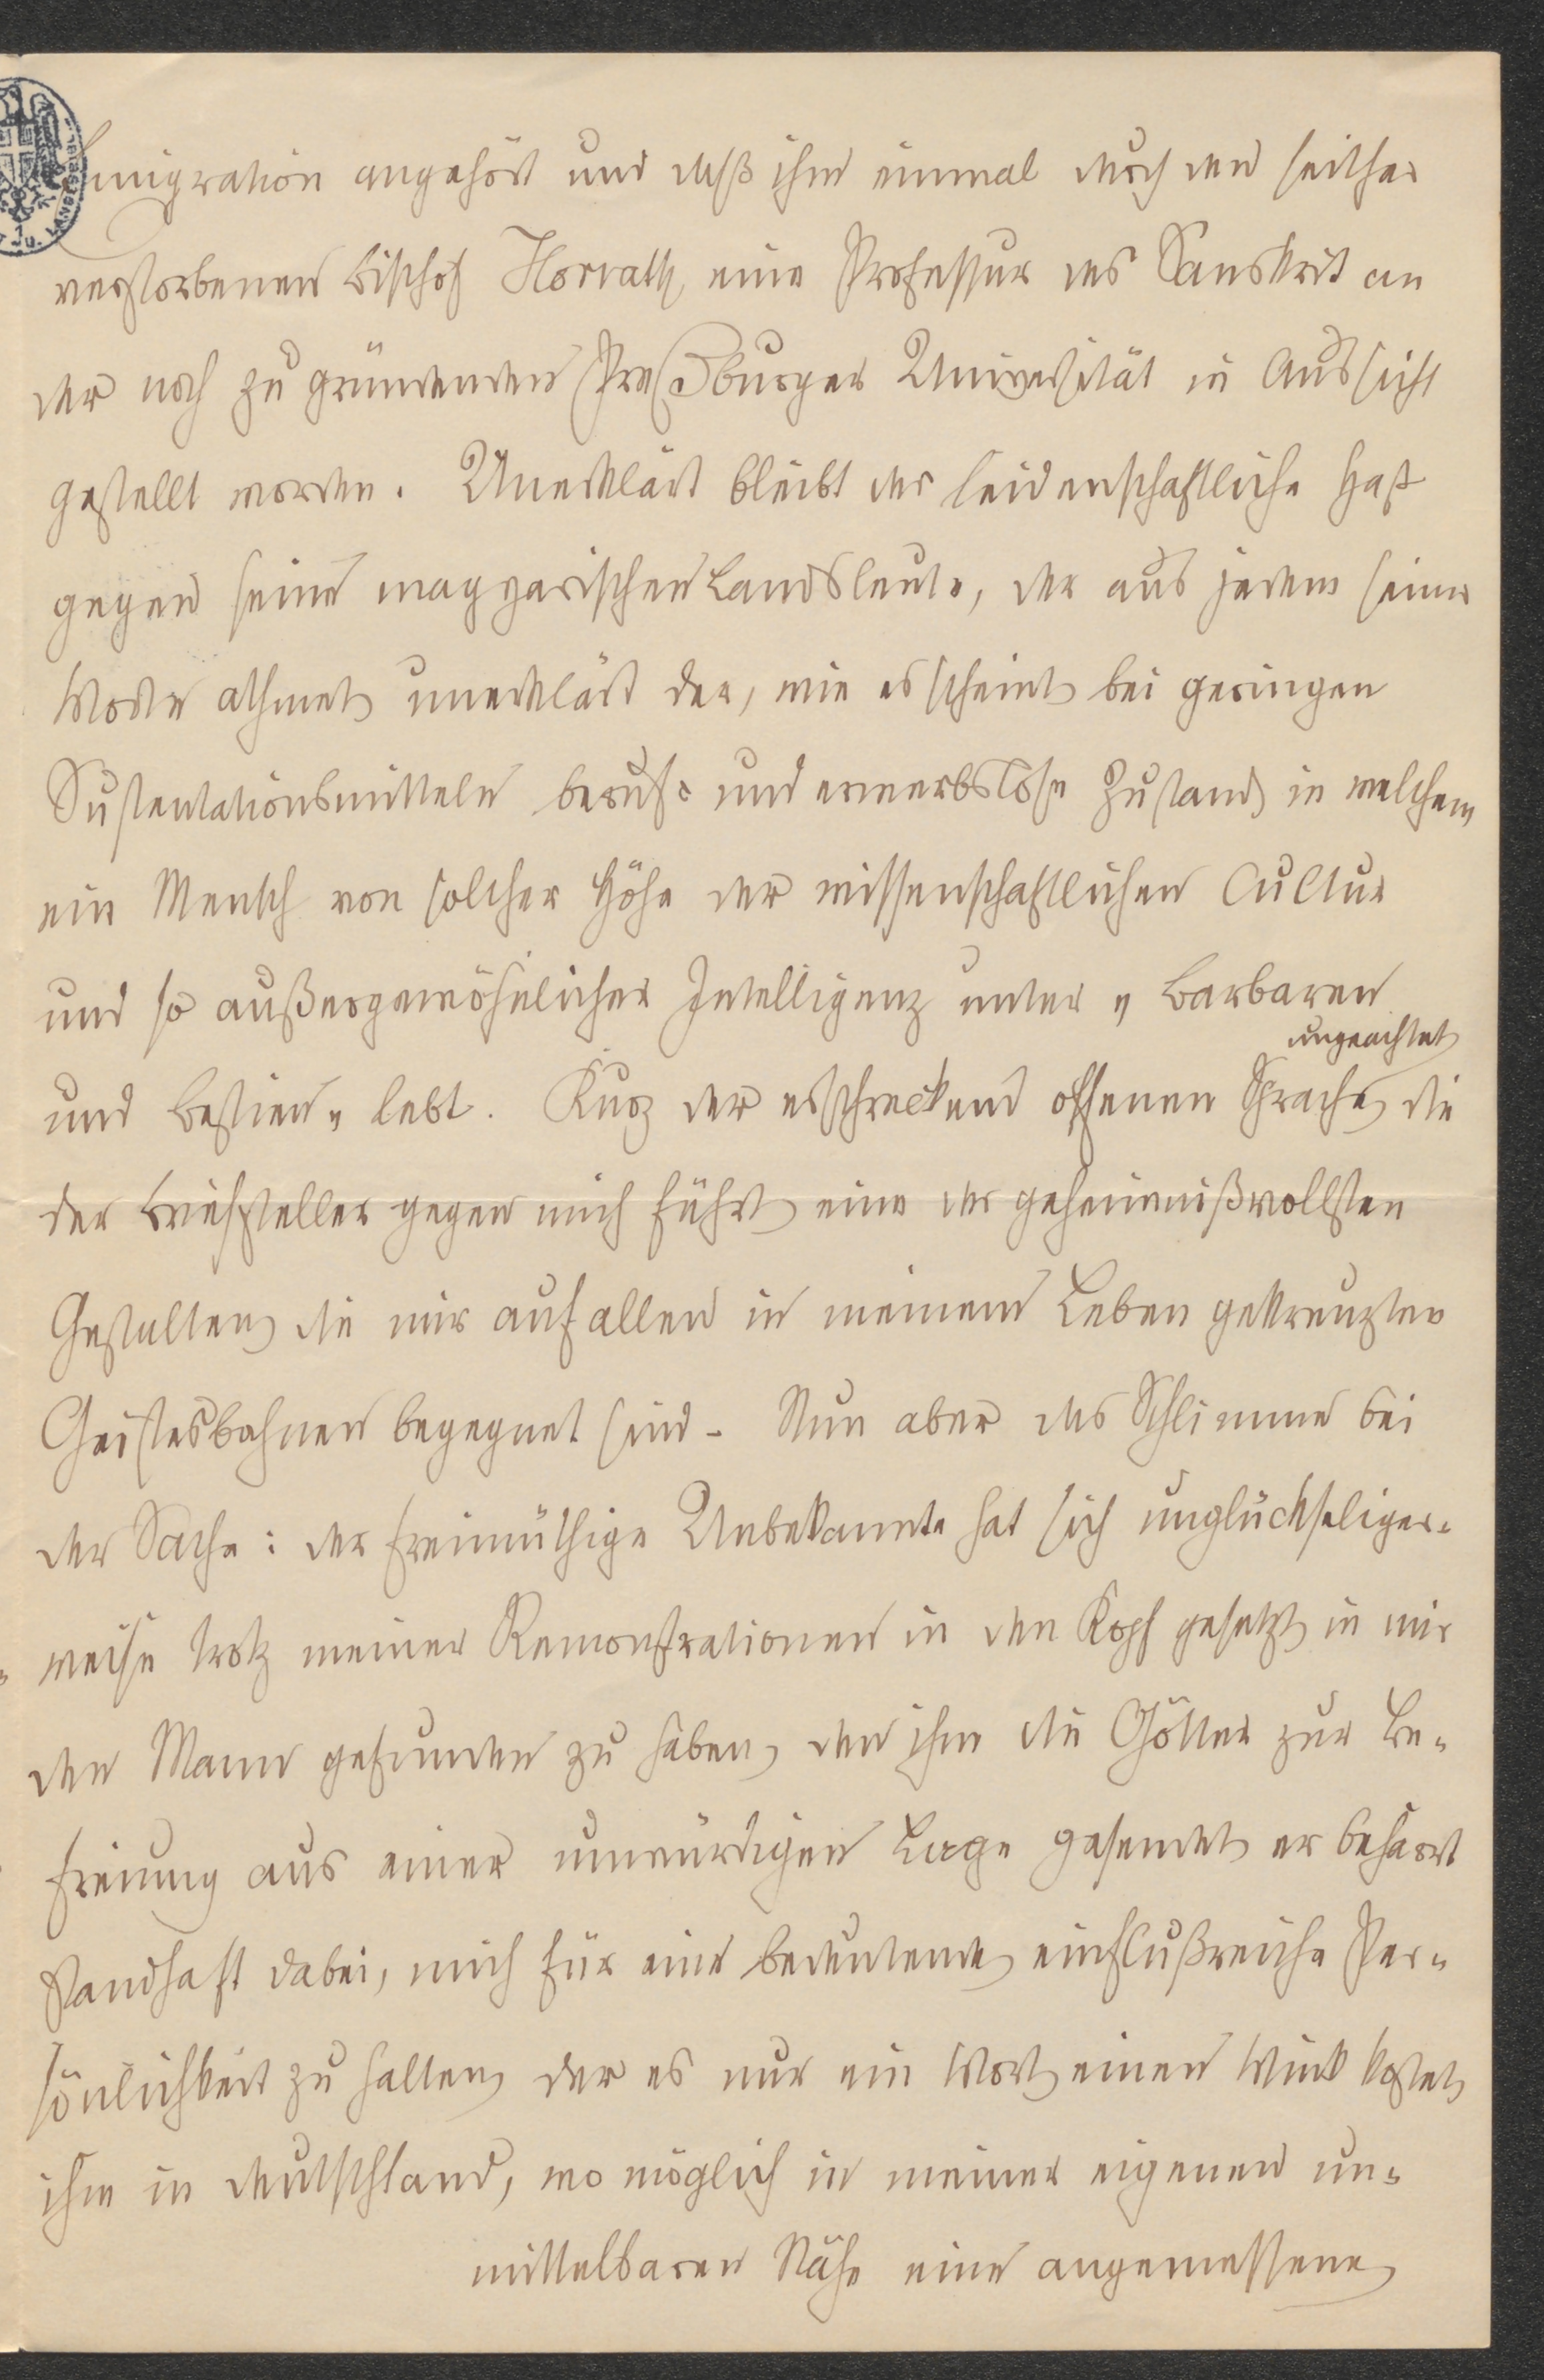 Emigration angehört und daß ihm einmal durch den seither
verstorbenen Bischof Horvath eine Professur des Sanskrit an
der noch zu gründenden Preßburger Universität in Aussicht
gestellt worden. Unerklärt bleibt der leidenschaftliche Haß
gegen seine magyarischen Landsleute, der aus jedem seiner
Worte athmet, unerklärt der, wie es scheint bei geringen
Sustentationsmitteln berufs- und erwerbslose Zustand, in welchem
ein Mensch von solcher Höhe der wissenschaftlichen Cultur
und so außergewöhnlicher Intelligenz unter „Barbaren
und Bestien„ lebt. Kurz der erschreckend offenen Sprache ungeachtet, die
der Briefsteller gegen mich führt, eine der geheimnißvollsten
Gestalten, die mir auf allen in meinem Leben gekreuzten
Geistesbahnen begegnet sind. Nun aber das Schlimme bei
der Sache: der freimüthige Unbekannte hat sich unglückseliger-
weise trotz meiner Remonstrationen in den Kopf gesetzt, in mir
den Mann gefunden zu haben, den ihm die Götter zur Be-
freiung aus einer unwürdigen Lage gesendet, er beharrt
standhaft dabei, mich für eine bedeutende, einflußreiche Per-
sönlichkeit zu halten, der es nur ein Wort, einen Wink kostet,
ihm in Deutschland, wo möglich in meiner eigenen un-
mittelbaren Nähe eine angemessene,